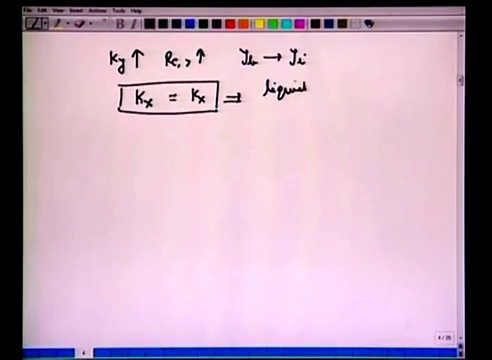 File Edit View Insert Actions Tools Help
B I
Ky ↑ Re,, ↑ yb → yi
Kx = kx ⇒ liquid
4
4 / 25